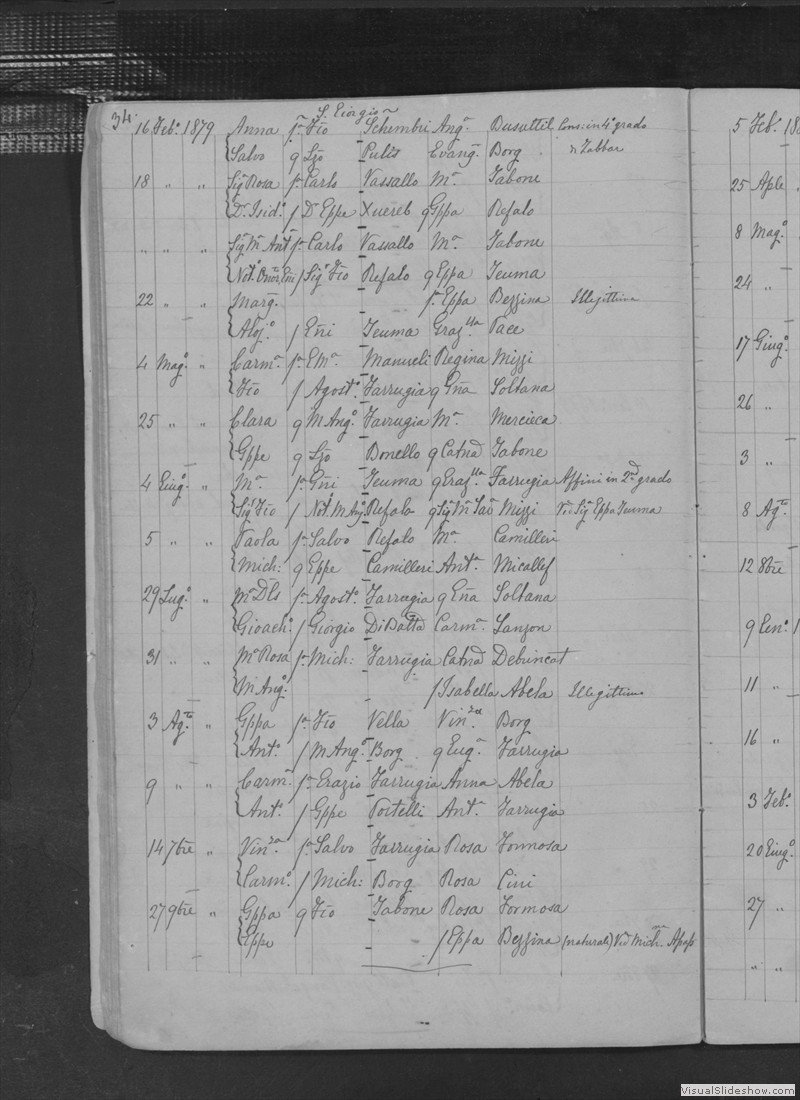 34.
S. Giorgio
16 Feb.o 1879 Anna f. Fio Schembri Ang.a Busuttil Cons: in 4o grado
Salvo q Ljo Pulis Evang.a Borg Zabbar
18 " " Sig.a Rosa f. Carlo Vassallo M.a Tabone
Dr. Isid.o f Dr. Gppe Xuereb q Gppa Refalo
" " " Sig.a M.a Ant.a f. Carlo Vassallo M.a Tabone
Not.o f Sig.r Fio Refalo q Gppa Teuma
22 " " Marg.a f. Gppa Bezzina Illegittima
Aloj.o f Gni Teuma Graz.lla Pace
4 Mag.o " Carm.a f. Manueli Regina Mizzi
Fio f Agost.o Farrugia q Gna Soltana
25 " " Clara q M. Ang.o Farrugia M.a Mercieca
Gppe q Ljo Bonello q Catna Tabone
4 Giug.o " M.a f. Gni Teuma q Graz.lla Farrugia Affini in 2.do grado
Sig.r Fio f Not.o M. Ang.o Refalo Mizzi Sig.a Gppa Teuma
5 " " Paola f. Salvo Refalo M.a Camilleri
Mich: q Gppe Camilleri Ant.a Micallef
29 Lug.o " M.a Dls f. Agost.o Farrugia q Gna Soltana
Gioach.o f Giorgio Di Batta Carm.a Sanzon
31 " " M.a Rosa f. Mich: Farrugia Catna Debuncat
M. Ang.o f Isabella Abela Illegittimo
3 Ag.to " Gppa f. Fio Vella Vin.za Borg
Ant.o f M. Ang.o Borg q Eug.a Farrugia
9 " " Carm.a f. Grazio Farrugia Anna Abela
Ant.o f Gppe Portelli Ant.a Farrugia
14 7bre " Vin.za f. Salvo Farrugia Rosa Formosa
Carm.o f Mich: Borg Rosa Cini
27 9bre " Gppa q Fio Tabone Rosa Formosa
Gppe f Gppa Bezzina (naturali) Mich.
5 Feb.o 18
25 Aple
8 Mag.o
24 "
17 Giug.o
26 "
3 "
8 Ag.to
12 8bre
9 Gen.o 1
11 "
16 "
3 Feb.o
20 Giug.o
27 "
" "
VisualSlideshow.com